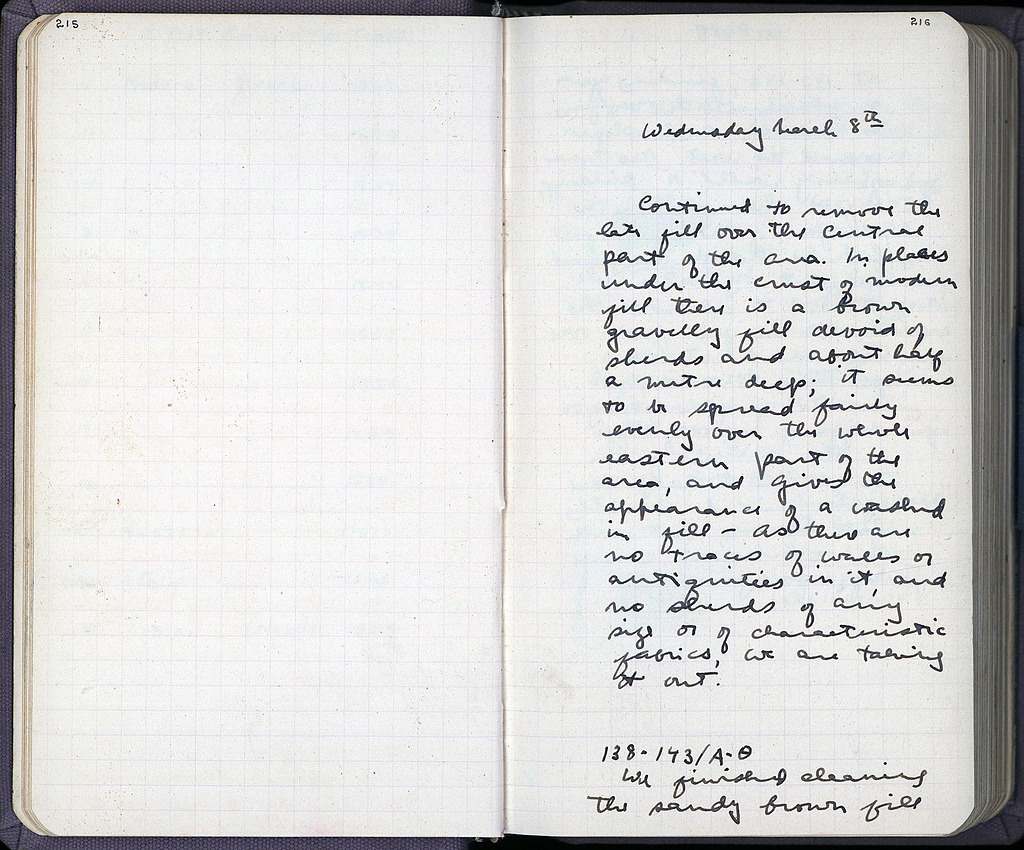 215
216
Wednesday March 8th
Continued to remove the
late fill over the central
part of the area. In places
under the crust of modern
fill there is a brown
gravelly fill devoid of
sherds and about half
a metre deep; it seems
to be spread fairly
evenly over the whole
eastern part of the
area, and gives the
appearance of a washed
in fill – as there are
no traces of walls or
antiquities in it, and
no sherds of any
size or of characteristic
fabrics, we are taking
it out.
138-143/A-Θ
We finished cleaning
the sandy brown fill